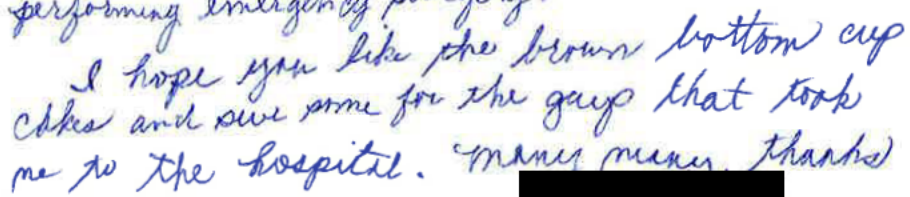 performing emergency
I hope you like the brown bottom cup
cakes and save some for the guys that took
me to the hospital. Many many thanks